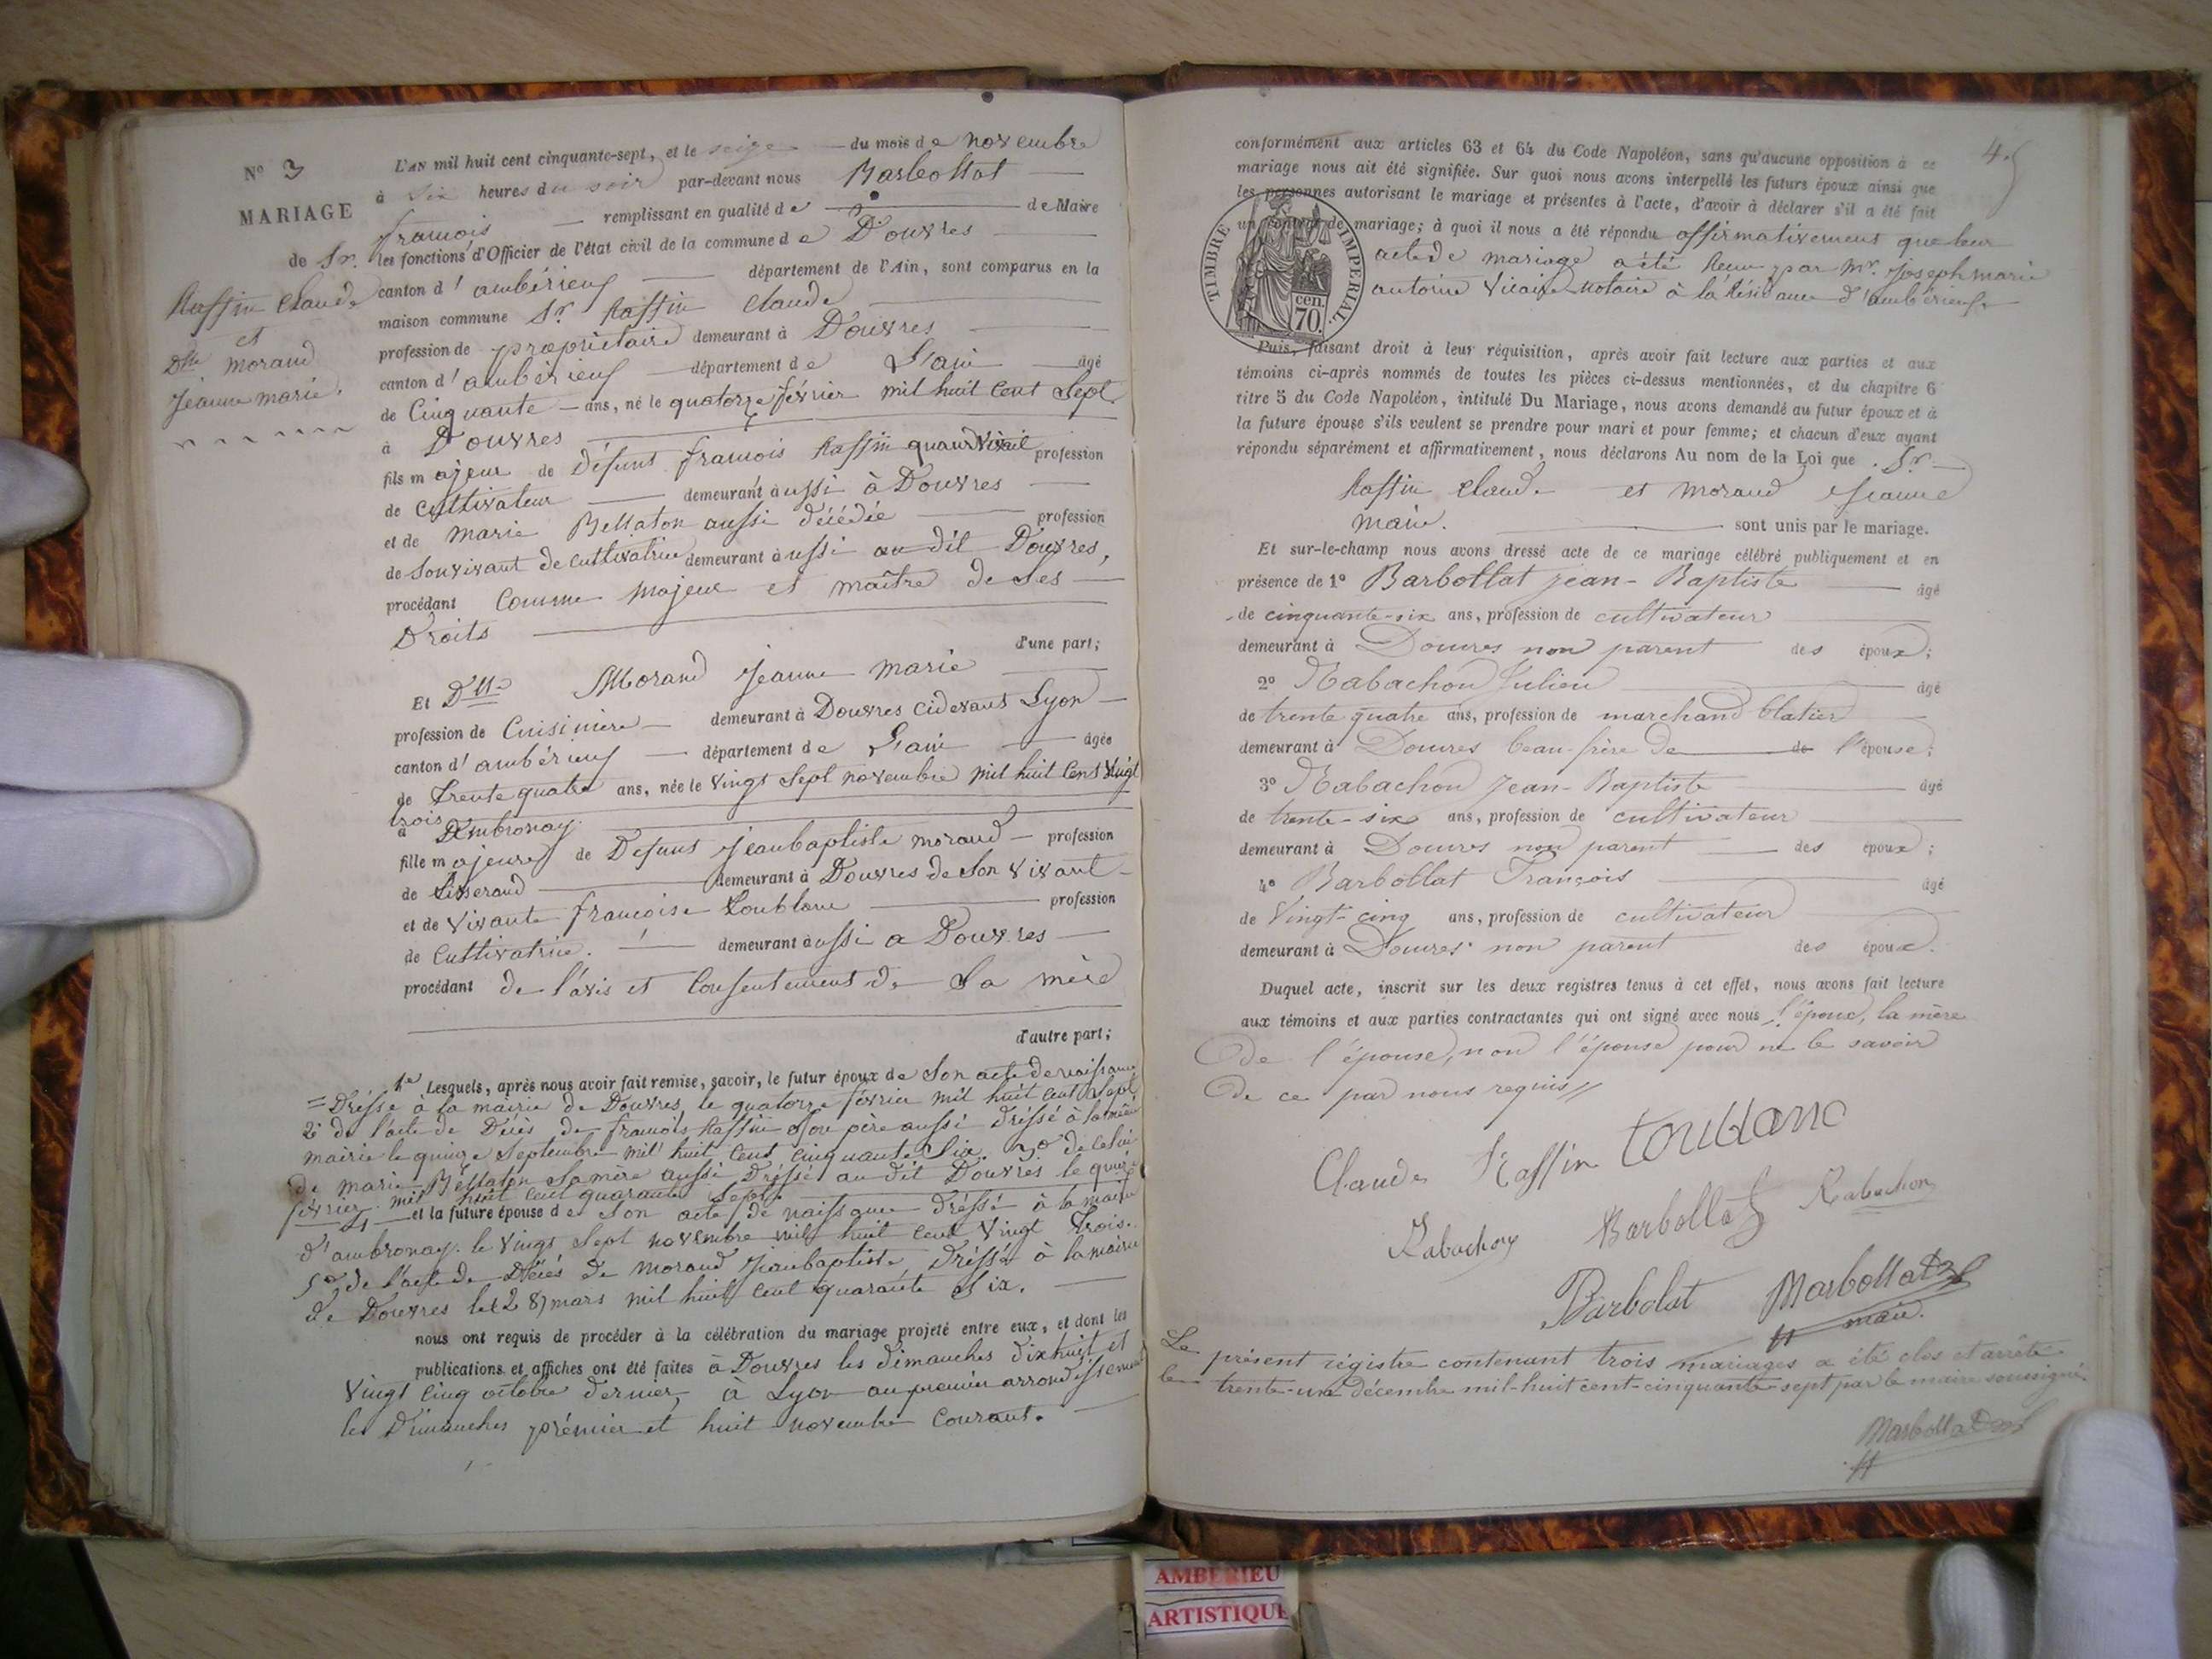 N° 3
MARIAGE
de Sr.
Raffin Claude
et
Dlle morand
jeanne marie.
L'AN mil huit cent cinquante-sept, et le seize du mois de novembre
à six heures du soir par-devant nous Barbollat
françois remplissant en qualité de de Maire
les fonctions d'Officier de l'état civil de la commune de Douvres
canton d'ambérieux département de l'Ain, sont comparus en la
maison commune Sr. Raffin Claude
profession de propriétaire demeurant à Douvres
canton d'ambérieux département de L'ain âgé
de Cinquante ans, né le quatorze février mil huit Cent Sept
à Douvres
fils majeur de Défunt françois Raffin quand Vivait profession
de Cultivateur demeurant aussi à Douvres
et de marie Bellaton aussi décédée profession
de Son vivant de cultivatrice demeurant aussi au dit Douvres,
procédant Comme Majeur et maître de Ses
Droits
d'une part;
Et Dlle Morand Jeanne marie
profession de Cuisinière demeurant à Douvres cidevant Lyon
canton d'ambérieux département de L'ain âgée
de trente quatre ans, née le Vingt Sept novembre mil huit Cent Vingt
trois
à D'Ambronay
fille majeure de Defunt Jeanbaptiste morand profession
de tisserand demeurant à Douvres de Son Vivant
et de Vivante françoise Toublanc profession
de Cultivatrice. demeurant aussi a Douvres
procédant de l'avis et Consentement de Sa mère
d'autre part;
1e Lesquels, après nous avoir fait remise, savoir, le futur époux de Son acte de naissance
Dréssé à la mairie de Douvres, le quatorze février mil huit cent Sept
2° de l'acte de Décès de françois Raffin Son père aussi Dréssé à la même
mairie le quinze Septembre mil huit Cent Cinquante Six. 3° de celui
de marie Bellaton Sa mère aussi Dréssé au dit Douvres le quinze
février mil huit cent quarante Sept.
4° et la future épouse de Son acte de naissance Dréssé à la mairie
d'ambronay le Vingt Sept novembre mil huit Cent Vingt trois.
5° de l'acte de Décès de morand Jeanbaptiste Dréssé à la mairie
de Douvres le (28) mars mil huit Cent quarante Six.
nous ont requis de procéder à la célébration du mariage projeté entre eux, et dont les
publications et affiches ont été faites à Douvres les dimanches dixhuit et
Vingt Cinq octobre dernier, à Lyon au premier arrondissement
les Dimanches prémier et huit novembre Courant.
conformément aux articles 63 et 64 du Code Napoléon, sans qu'aucune opposition à ce
mariage nous ait été signifiée. Sur quoi nous avons interpellé les futurs époux ainsi que
les personnes autorisant le mariage et présentes à l'acte, d'avoir à déclarer s'il a été fait
un contrat de mariage; à quoi il nous a été répondu affirmativement que leur
acte de mariage a été Reçu par Mr. Joseph marie
antoine Vicaire notaire à la Résidance d'ambérieux
TIMBRE IMPERIAL
cen.
70.
Puis, faisant droit à leur réquisition, après avoir fait lecture aux parties et aux
témoins ci-après nommés de toutes les pièces ci-dessus mentionnées, et du chapitre 6
titre 5 du Code Napoléon, intitulé Du Mariage, nous avons demandé au futur époux et à
la future épouse s'ils veulent se prendre pour mari et pour femme; et chacun d'eux ayant
répondu séparément et affirmativement, nous déclarons Au nom de la Loi que Sr.
Raffin Claude et Morand Jeanne
Marie. sont unis par le mariage.
Et sur-le-champ nous avons dressé acte de ce mariage célébré publiquement et en
présence de 1° Barbollat jean-Baptiste âgé
de cinquante-six ans, profession de cultivateur
demeurant à Douvres non parent des époux;
2° Rabachon Julien âgé
de trente quatre ans, profession de marchand blatier
demeurant à Douvres beau-frère de de l'épouse;
3° Rabachon Jean-Baptiste âgé
de trente-six ans, profession de cultivateur
demeurant à Douvres non parent des époux;
4° Barbollat François âgé
de Vingt-cinq ans, profession de cultivateur
demeurant à Douvres non parent des époux.
Duquel acte, inscrit sur les deux registres tenus à cet effet, nous avons fait lecture
aux témoins et aux parties contractantes qui ont signé avec nous l'époux, la mère
de l'épouse, non l'épouse pour ne le savoir
de ce par nous requis
Claude Raffin Toublanc
Rabachon Barbollat Rabachon
Barbolat Barbollat
maire.
Le présent régistre contenant trois mariages a été clos et arrêté
le trente-un décembre mil-huit cent-cinquante-sept par le maire soussigné.
Barbollat
AMBERIEU
ARTISTIQUE